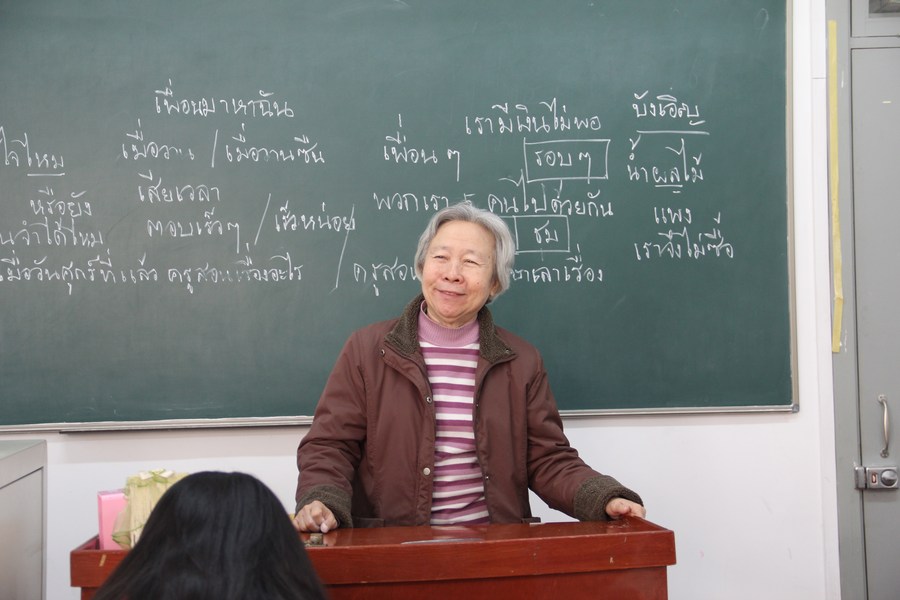 เพื่อนมาหาฉัน
ใจไหม
เมื่อวาน / เมื่อวานซืน
หรือยัง
เสียเวลา
ตอบเร็วๆ / เร็วหน่อย
จำได้ไหม
เมื่อวันศุกร์ที่แล้ว ครูสอนเรื่องอะไร / ครูสอน
เรามีเงินไม่พอ
เพื่อน ๆ
รอบๆ
พวกเรา ๕ คนไปด้วยกัน
ชม
เรื่อง
บังเอิญ
น้ำผลไม้
แพง
เราจึงไม่ซื้อ